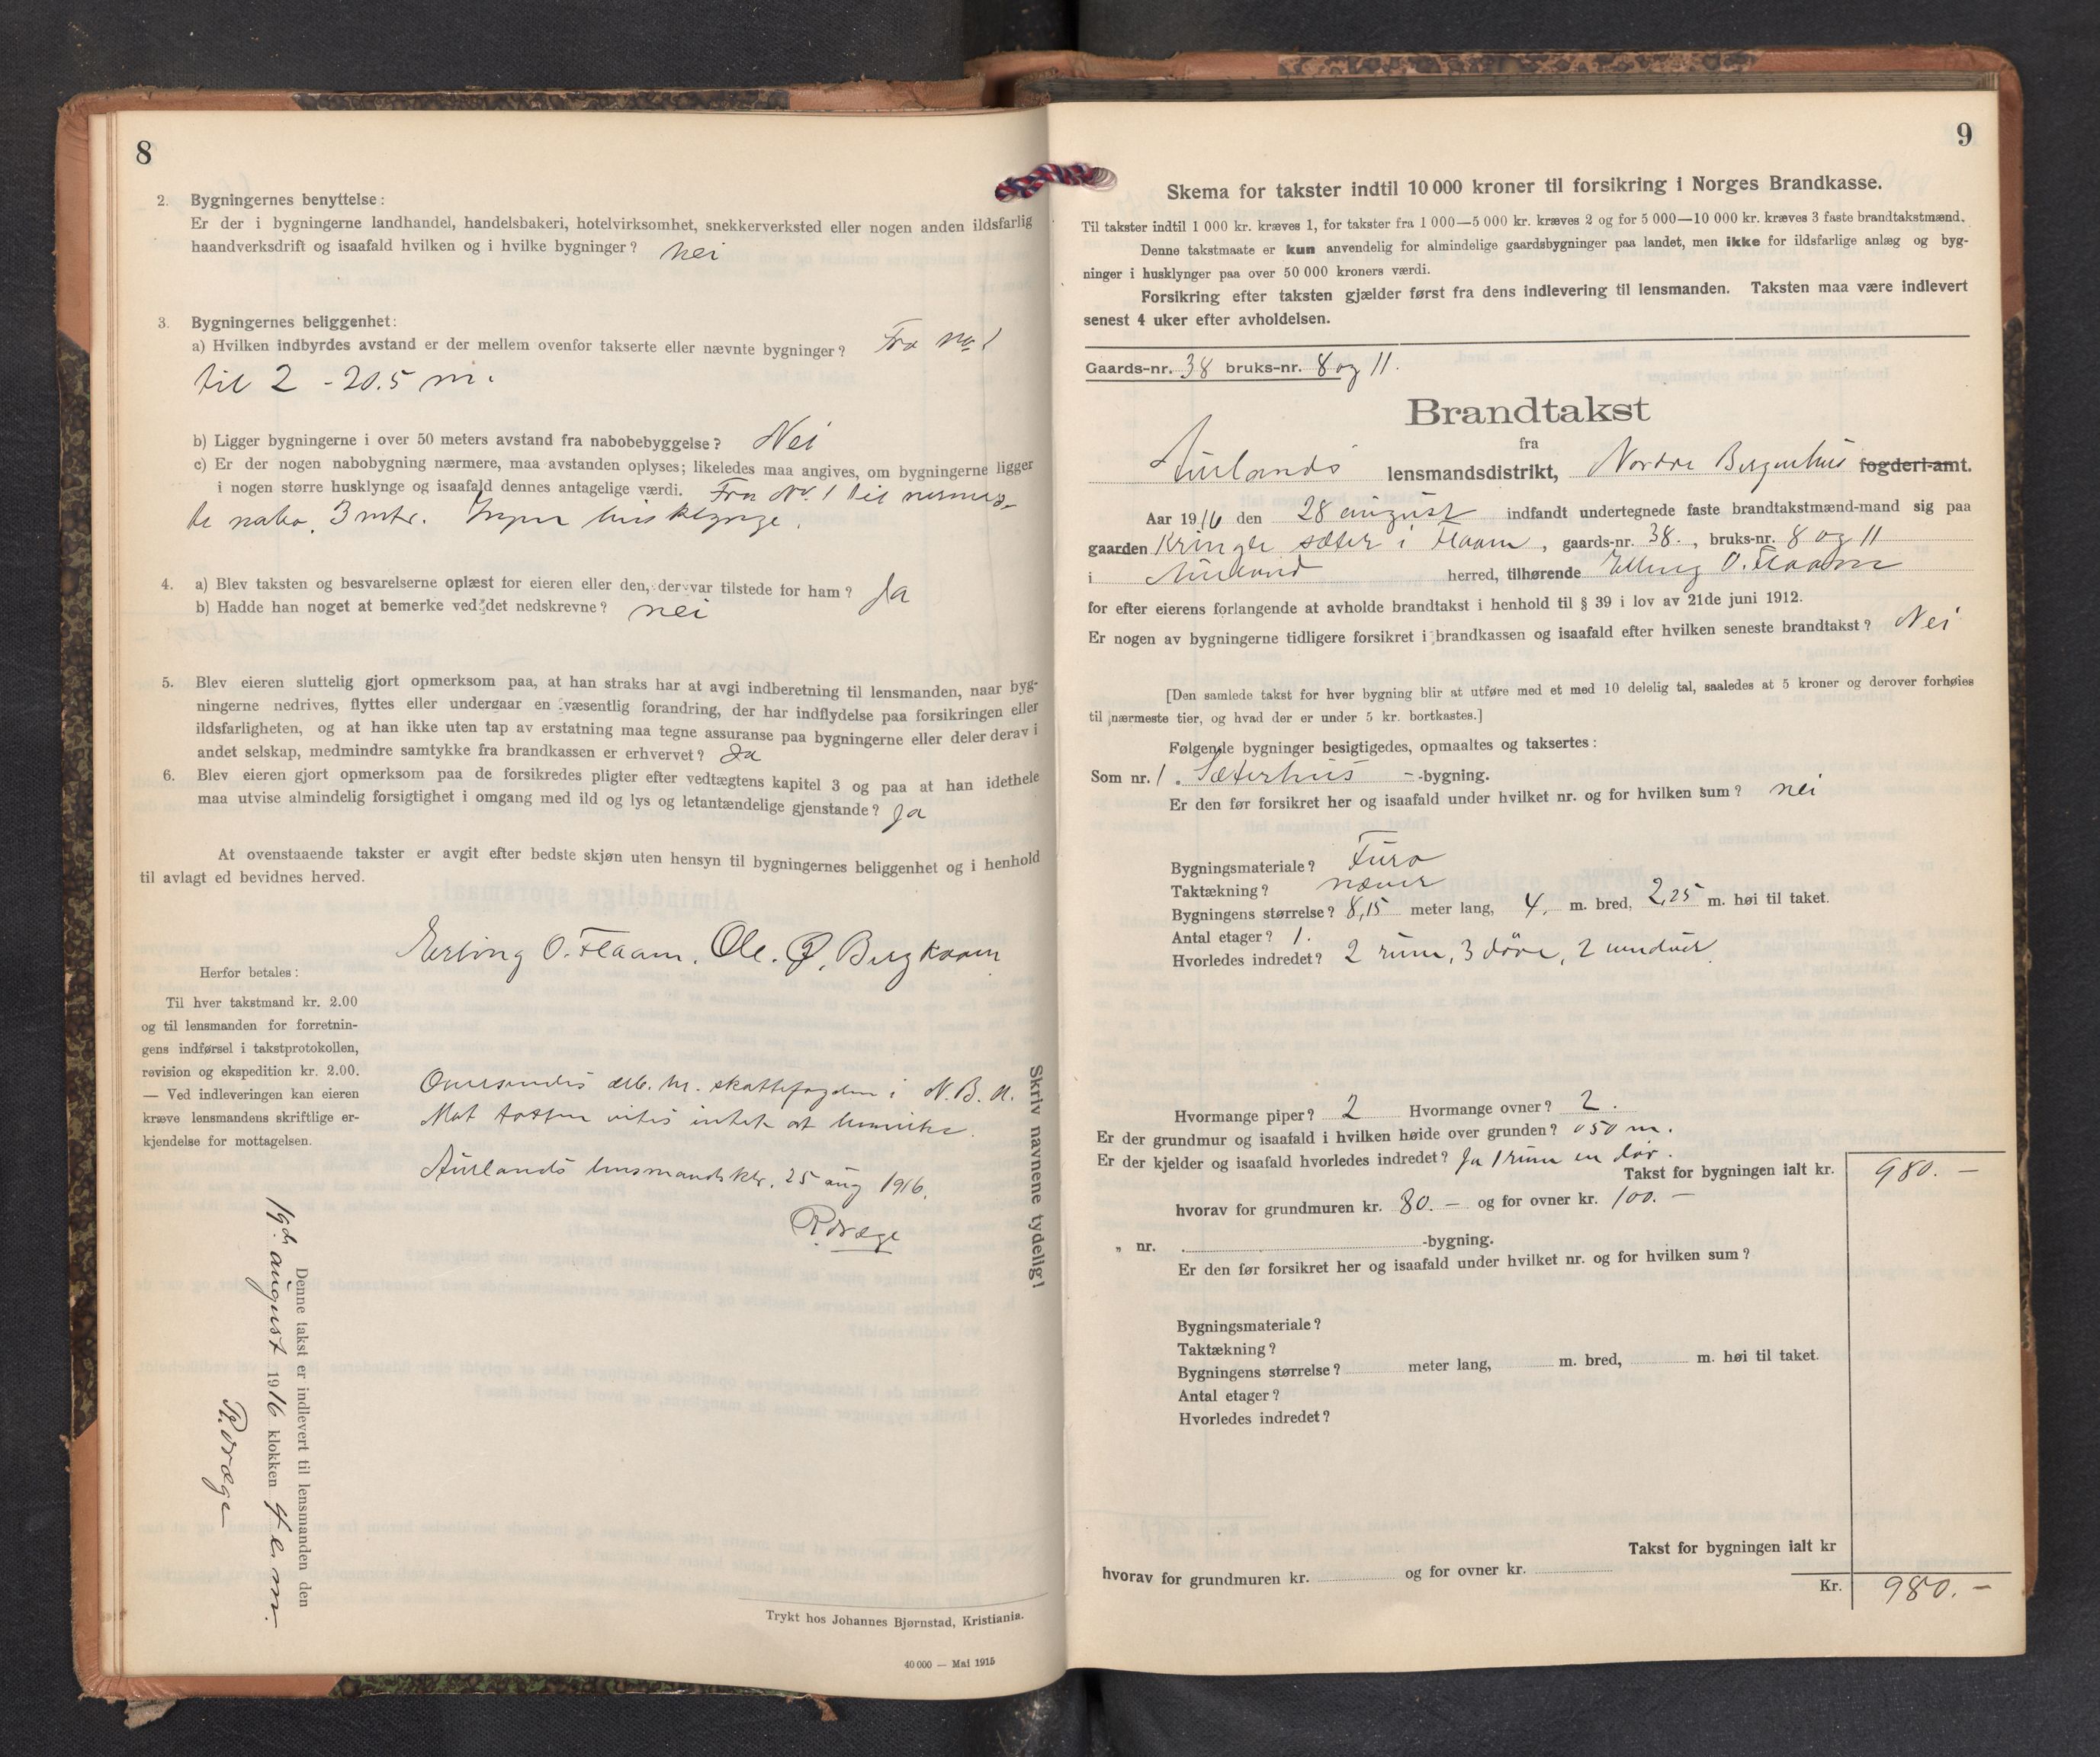 8
2. Bygningernes benyttelse:
Er der i bygningerne landhandel, handelsbakeri, hotelvirksomhet, snekkerverksted eller nogen anden ildsfarlig
haandverksdrift og isaafald hvilken og i hvilke bygninger? nei
3. Bygningernes beliggenhet:
a) Hvilken indbyrdes avstand er der mellem ovenfor takserte eller nævnte bygninger? Fra No 1
til 2 - 20.5 m.
b) Ligger bygningerne i over 50 meters avstand fra nabobebyggelse? Nei
c) Er der nogen nabobygning nærmere, maa avstanden oplyses; likeledes maa angives, om bygningerne ligger
i nogen større husklynge og isaafald dennes antagelige værdi. Fra No. 1 til nærmes-
te nabo, 3 mtr. Ingen husklynge.
4. a) Blev taksten og besvarelserne oplæst for eieren eller den, der var tilstede for ham? Ja
b) Hadde han noget at bemerke ved det nedskrevne? nei
5. Blev eieren sluttelig gjort opmerksom paa, at han straks har at avgi indberetning til lensmanden, naar byg-
ningerne nedrives, flyttes eller undergaar en væsentlig forandring, der har indflydelse paa forsikringen eller
ildsfarligheten, og at han ikke uten tap av erstatning maa tegne assuranse paa bygningerne eller deler derav i
andet selskap, medmindre samtykke fra brandkassen er erhvervet? Ja
6. Blev eieren gjort opmerksom paa de forsikredes pligter efter vedtægtens kapitel 3 og paa at han idethele
maa utvise almindelig forsigtighet i omgang med ild og lys og letantændelige gjenstande? Ja
At ovenstaaende takster er avgit efter bedste skjøn uten hensyn til bygningernes beliggenhet og i henhold
til avlagt ed bevidnes herved.
Erling O. Flaam. Ole. O. Bergkvam
Herfor betales:
Til hver takstmand kr. 2.00
og til lensmanden for forretnin-
gens indførsel i takstprotokollen,
revision og ekspedition kr. 2.00.
— Ved indleveringen kan eieren
kræve lensmandens skriftlige er-
kjendelse for mottagelsen.
Oversendes ærb. hr. skattefogden i N. B. A.
Mot taksten vites intet at bemerke.
Aurlands lensmandsktr. 25 aug 1916.
R. Dræge
Skriv navnene tydelig!
Denne takst er indlevert til lensmanden den
19de august 1916 klokken 4 e. m.
R. Dræge
Trykt hos Johannes Bjørnstad, Kristiania.
40 000 — Mai 1915
9
Skema for takster indtil 10 000 kroner til forsikring i Norges Brandkasse.
Til takster indtil 1 000 kr. kræves 1, for takster fra 1 000—5 000 kr. kræves 2 og for 5 000—10 000 kr. kræves 3 faste brandtakstmænd.
Denne takstmaate er kun anvendelig for almindelige gaardsbygninger paa landet, men ikke for ildsfarlige anlæg og byg-
ninger i husklynger paa over 50 000 kroners værdi.
Forsikring efter taksten gjælder først fra dens indlevering til lensmanden. Taksten maa være indlevert
senest 4 uker efter avholdelsen.
Gaards-nr. 38 bruks-nr. 8 og 11.
Brandtakst
fra
Aurlands lensmandsdistrikt, Nordre Bergenhus fogderi-amt.
Aar 1916 den 28 august indfandt undertegnede faste brandtakstmænd-mand sig paa
gaarden Kringle sæter i Flaam, gaards-nr. 38., bruks-nr. 8 og 11
i Aurland herred, tilhørende Elling O. Flaam
for efter eierens forlangende at avholde brandtakst i henhold til § 39 i lov av 21de juni 1912.
Er nogen av bygningerne tidligere forsikret i brandkassen og isaafald efter hvilken seneste brandtakst? Nei
[Den samlede takst for hver bygning blir at utføre med et med 10 delelig tal, saaledes at 5 kroner og derover forhøies
til nærmeste tier, og hvad der er under 5 kr. bortkastes.]
Følgende bygninger besigtigedes, opmaaltes og taksertes:
Som nr. 1. Sæterhus - -bygning.
Er den før forsikret her og isaafald under hvilket nr. og for hvilken sum? nei
Bygningsmateriale? Furo
Taktækning? næver
Bygningens størrelse? 8,15 meter lang, 4. m. bred, 2,25 m. høi til taket.
Antal etager? 1.
Hvorledes indredet? 2 rum, 3 döre, 2 vinduer.
Hvormange piper? 2 Hvormange ovner? 2.
Er der grundmur og isaafald i hvilken høide over grunden? 0 50 m.
Er der kjelder og isaafald hvorledes indredet? Ja 1 rum en dör.
Takst for bygningen ialt kr. 980. —
hvorav for grundmuren kr. 80. — og for ovner kr. 100. —
„ nr. -bygning.
Er den før forsikret her og isaafald under hvilket nr. og for hvilken sum?
Bygningsmateriale?
Taktækning?
Bygningens størrelse? meter lang, m. bred, m. høi til taket.
Antal etager?
Hvorledes indredet?
Takst for bygningen ialt kr
hvorav for grundmuren kr. og for ovner kr.
Kr. 980. —